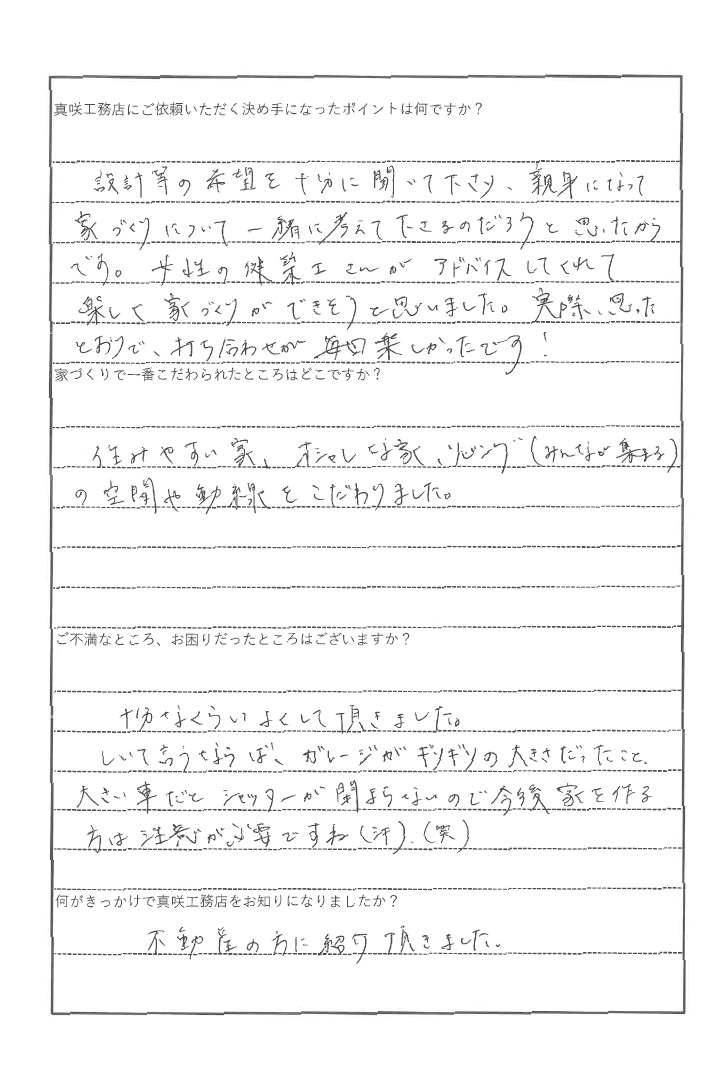 真咲工務店にご依頼いただく決め手になったポイントは何ですか？
設計等の希望を十分に聞いて下さり、親身になって
家づくりについて一緒に考えて下さるのだろうと思ったから
です。女性の建築士さんがアドバイスしてくれて
楽しく家づくりができそうと思いました。実際、思った
とおりで、打ち合わせが毎回楽しかったです！
家づくりで一番こだわられたところはどこですか？
住みやすい家、オシャレな家、リビング（みんなが集まる）
の空間や動線をこだわりました。
ご不満なところ、お困りだったところはございますか？
十分なくらいよくして頂きました。
しいて言うならば、ガレージがギリギリの大きさだったこと、
大きい車だとシャッターが閉まらないので今後家を作る
方は注意が必要ですね（汗）.（笑）
何がきっかけで真咲工務店をお知りになりましたか？
不動産の方に紹介頂きました。